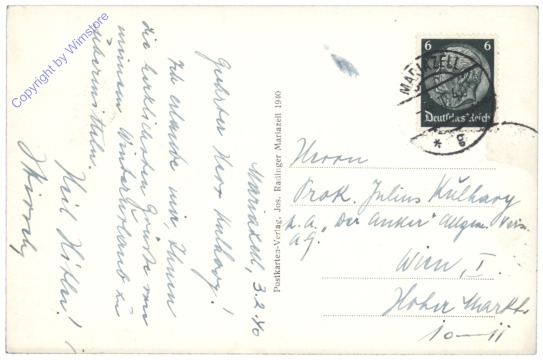 Copyright by Wimstore
Mariazell, 3.2.40
Geehrter Herr Kulhavy!
Ich erlaube mir, Ihnen
die herzlichsten Grüße von
meinem Winterurlaub zu
übermitteln.
Heil Hitler!
Postkarten-Verlag, Jos. Radinger Mariazell 1940
6 6
Deutsches Reich
MARIAZELL
* g
Herrn
Prok. Julius Kulhavy
"Der Anker" Allgem. Vers.
A.G.
Wien, I.
Hoher Markt
10-11